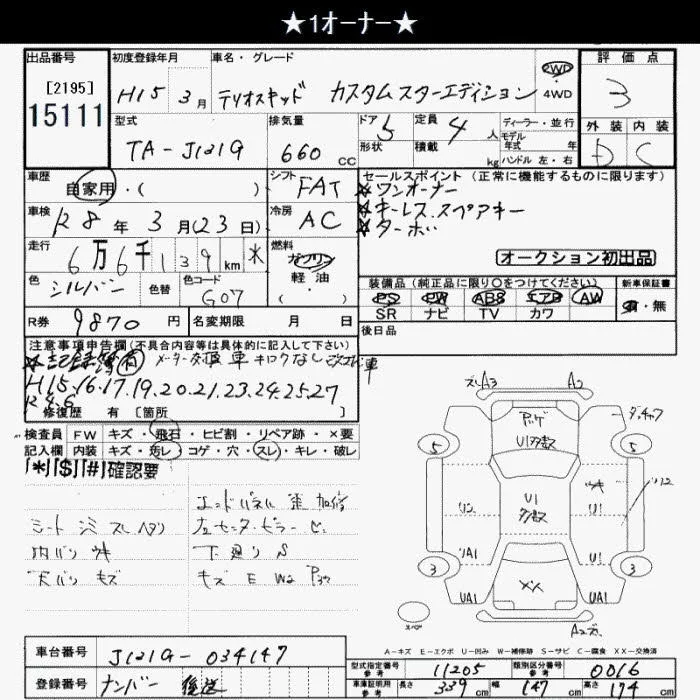 ★1オーナー★
出品番号
[2195]
15111
初度登録年月
H15年 3月
車名・グレード
テリオスキッド カスタムスターエディション
2WD
4WD
評価点
3
外装 内装
D C
型式
TA-J121G
排気量
660 cc
ドア 5
形状
定員 4 人
積載 kg
ディーラー・並行
モデル年式 年式
ハンドル 左・右
車歴
自家用・( )
シフト
FAT
セールスポイント (正常に機能するものに限ります)
★ワンオーナー
★キーレス.スペアキー
★ターボ
オークション初出品
車検
R8年 3月(23日)
冷房
AC
走行
6万6千139 km
燃料
ガソリン
軽油
( )
色
シルバー
色替
色コード
G07
装備品 (純正品に限り○をつけてください)
PS PW ABS エアB AW
SR ナビ TV カワ
新車保証書
有・無
R券
9870円
名変期限 月 日
後日品
注意事項申告欄(不具合内容等は具体的に記入して下さい)
★記録簿有 メーター交換車 キロクなし
H15.16.17.19.20.21.23.24.25.27
R4.6
修復歴 有 [箇所
検査員 FW キズ・飛石・ヒビ割・リペア跡・×要
記入欄 内装 キズ・汚レ・コゲ・穴・スレ・キレ・破レ
「*」「$」「#」確認要
シート スレ ヘタリ
天バリ キズ
エンドパネル 歪 加修
左センターピラー
下廻り S
キズ E W2
A3 A2
U1多数
5 5
U1
多数
U1
UA1 U1
3 3
UA1 XX UA1
スペア
A2
A-キズ E-エクボ U-凹み W-補修跡 S-サビ C-腐食 XX-交換済
車台番号
J121G-034147
登録番号
ナンバー 後送
型式指定番号
参考
11205
類別区分番号
参考
0016
車庫証明用
参考
長さ 339 cm 幅 147 cm 高さ 174 cm